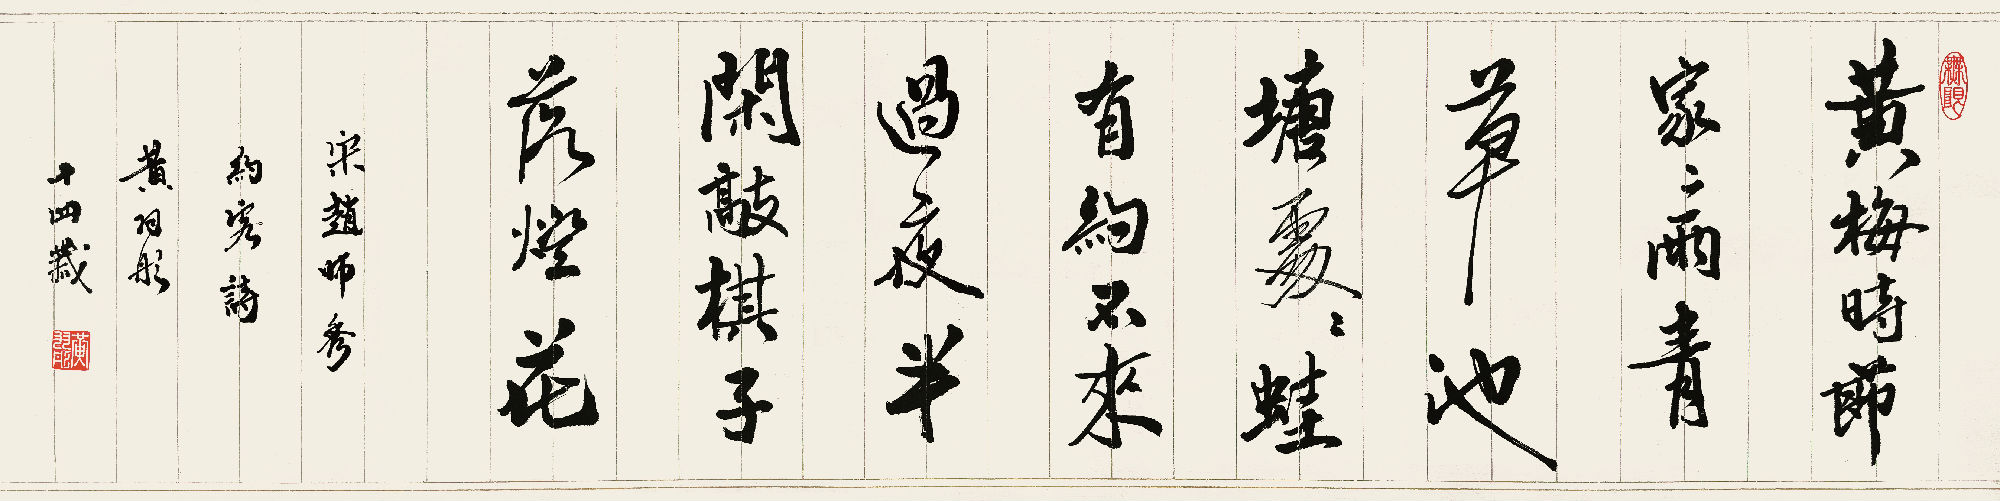 黃梅時節
家〻雨青
草池
塘處〻蛙
有約不來
過夜半
閑敲棋子
落燈花
宋趙師秀
約客詩
黃羽彤
十四歲